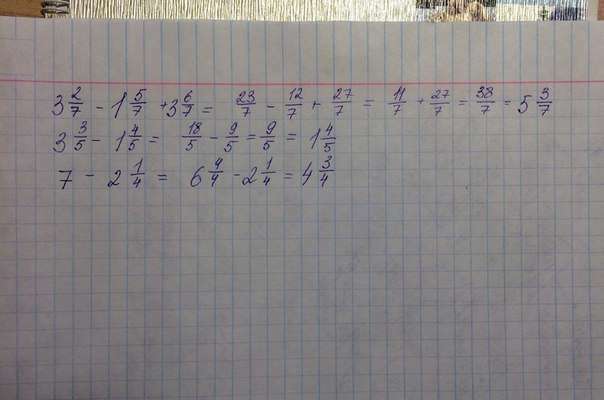 3 2/7 - 1 5/7 + 3 6/7 = 23/7 - 12/7 + 27/7 = 11/7 + 27/7 = 38/7 = 5 3/7
3 3/5 - 1 4/5 = 18/5 - 9/5 = 9/5 = 1 4/5
7 - 2 1/4 = 6 4/4 - 2 1/4 = 4 3/4